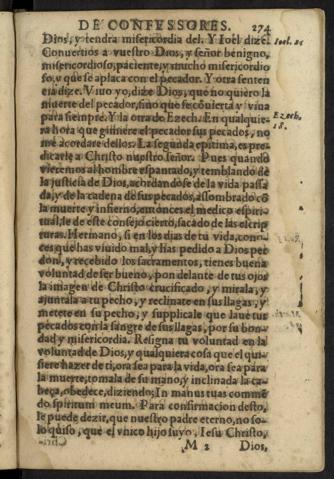 DE CONFESSORES. 274
Dios, y tendra misericordia del. Y Ioel dize. Ioel. 2.
Conuertios a vuestro Dios, y señor benigno,
misericordioso, paciente, y mucho misericordio
so, y que se aplaca con el pecador. Y otra senten
cia dize. Viuo yo, dize Dios, que no quiero la
muerte del pecador, sino que se cõuierta y viua
para siempre. Y la otra de Ezech. En qualquie- Ezech.
ra hora que gimiere el pecador sus pecados, no 18.
me acordare dellos. La segunda epitima, es pre-
dicarle a Christo nuestro señor. Pues quando
vieremos al hombre espantado, y temblando de
la justicia de Dios, acordandose de la vida passa
da, y de la cadena de sus pecados, assombrado cõ
la muerte y infierno, entonces el medico espiri-
tual, le de este consejo cierto, sacado de las escrip
turas. Hermano, si en los dias de tu vida, cono-
ces que has viuido mal, y has pedido a Dios per
don, y recebido los sacramentos, tienes buena
voluntad de ser bueno, pon delante de tus ojos
la imagen de Christo crucificado, y mirala, y
ajuntala a tu pecho, y reclinate en sus llagas, y
metete en su pecho, y supplicale que laue tus
pecados con la sangre de sus llagas, por su bon-
dad y misericordia. Resigna tu voluntad en la
voluntad de Dios, y qualquiera cosa que el qui-
siere hazer de ti, ora sea para la vida, ora sea para
la muerte, tomala de su mano, y inclinada la ca-
beça, obedece, diziendo; In manus tuas commē
do spiritum meum. Para confirmacion desto,
le puede dezir, que nuestro padre eterno, no so-
lo quiso, que el vnico hijo suyo, Iesu Christo,
M 2 Dios,